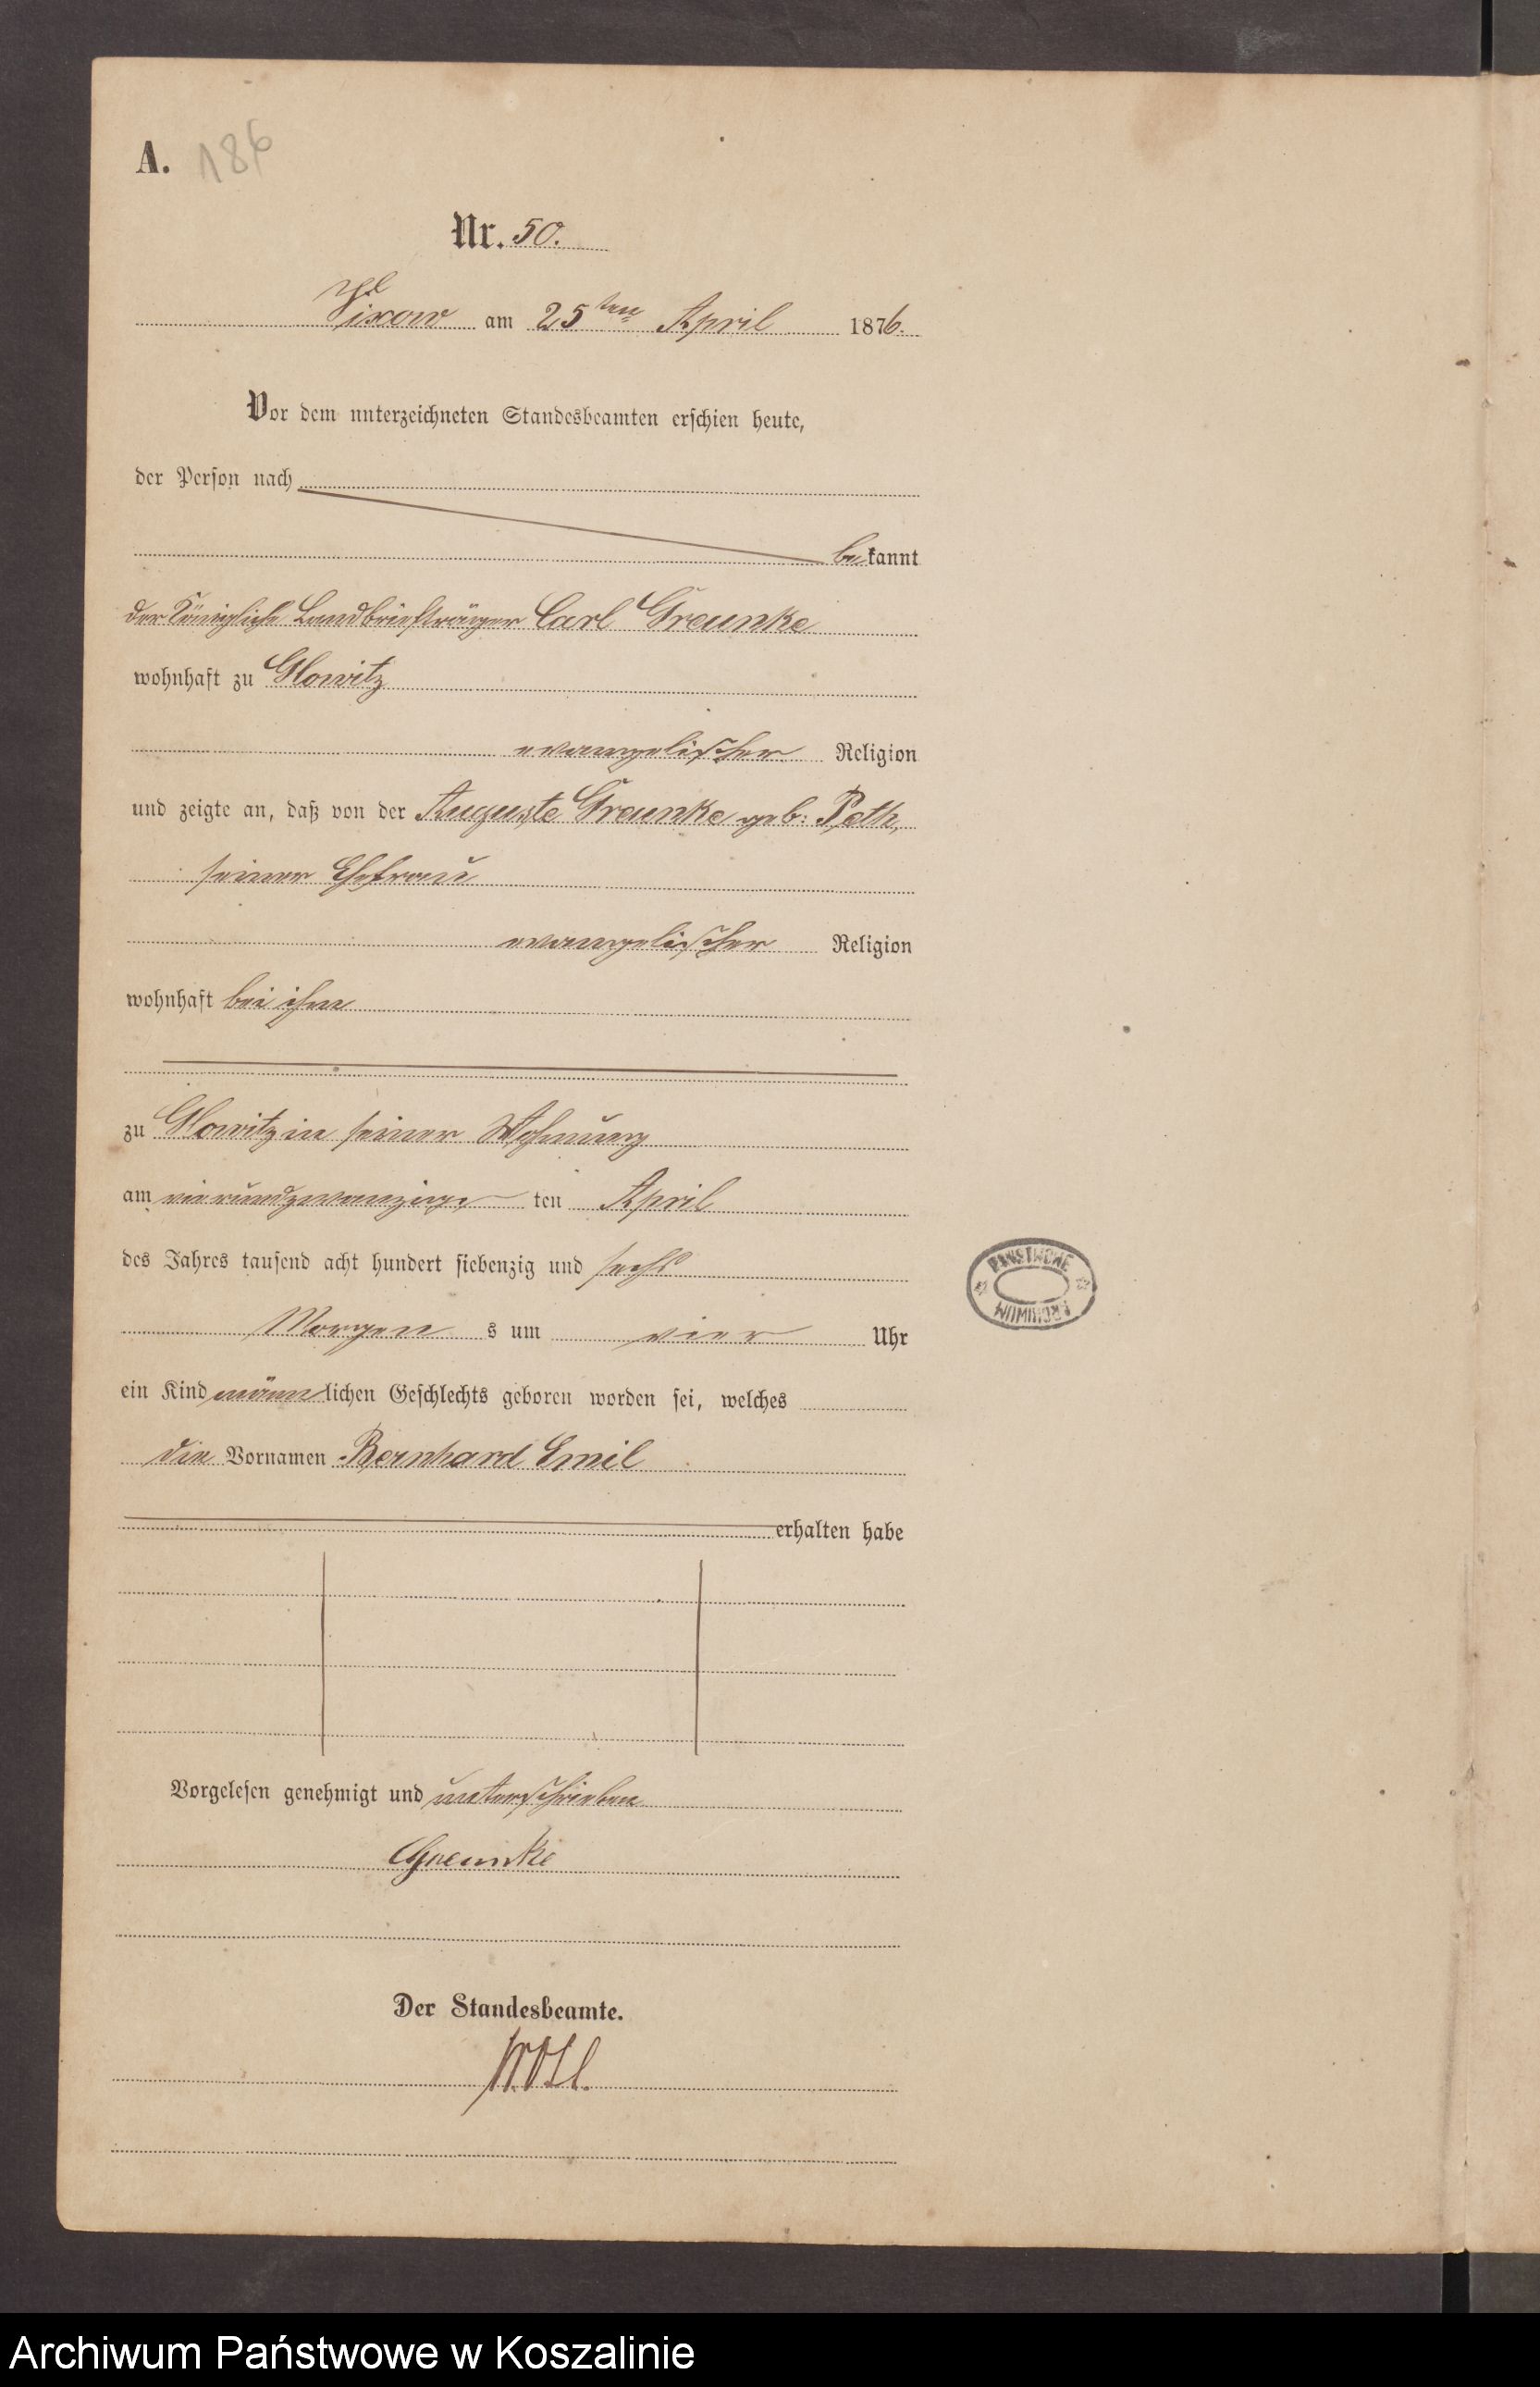 A. 186
Nr. 50.
Vixow am 25ten April 1876.
Vor dem unterzeichneten Standesbeamten erschien heute,
der Person nach
bekannt
der Königliche Landbriefträger Carl Greunke
wohnhaft zu Glowitz
evangelischer Religion
und zeigte an, daß von der Auguste Greunke geb: Peth,
seiner Ehefrau
evangelischer Religion
wohnhaft bei ihm
zu Glowitz in seiner Wohnung
am vierundzwanzigsten April
des Jahres tausend acht hundert siebenzig und sechs
Morgens um vier Uhr
ein Kind männlichen Geschlechts geboren worden sei, welches
die Vornamen Bernhard Emil
erhalten habe
Vorgelesen genehmigt und unterschrieben
Greunke
Der Standesbeamte.
PAŃSTWOWE
ARCHIWUM
Archiwum Państwowe w Koszalinie